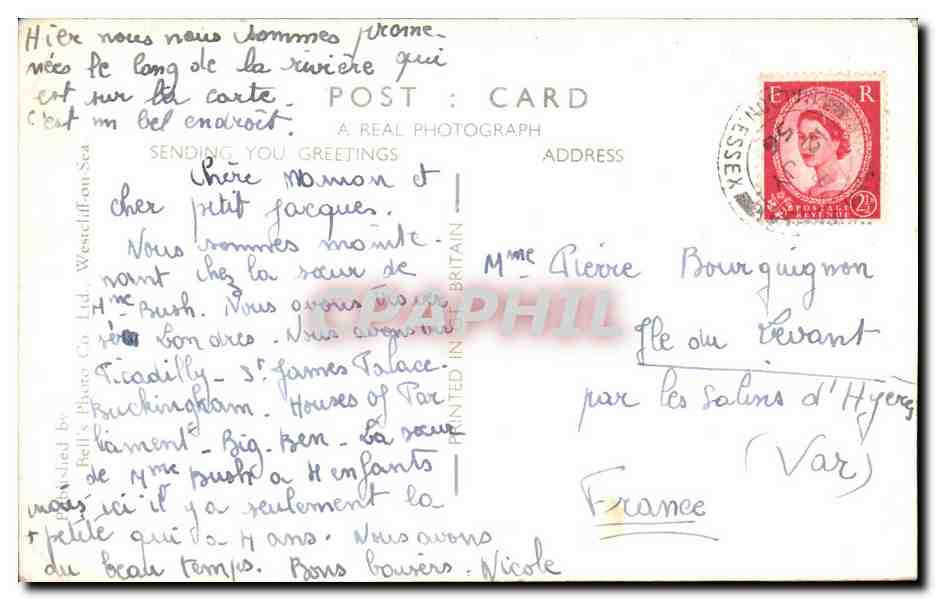 Hier nous nous sommes prome-
nées le long de la rivière qui
est sur la carte.
c'est un bel endroit.
POST : CARD
A REAL PHOTOGRAPH
SENDING YOU GREETINGS
ADDRESS
Chère Maman et
cher petit Jacques.
Nous sommes mainte-
nant chez la sœur de
Mme Bush. Nous avons traver
sé Londres. Nous avons vu
Picadilly - St James Palace.
Buckingham. Houses of Par
liament - Big-Ben - La sœur
de Mme Bush a 4 enfants
mais ici il y a seulement la
+ petite qui a 4 ans. Nous avons
du beau temps. Bons baisers. Nicole
Mme Pierre Bourguignon
Ile du Levant
par les Salins d'Hyères
(Var)
France
Published by
Bell's Photo Co. Ltd., Westcliff-on-Sea
PRINTED IN BRITAIN
CPAPHIL
E R
POSTAGE
REVENUE
2½
ESSEX